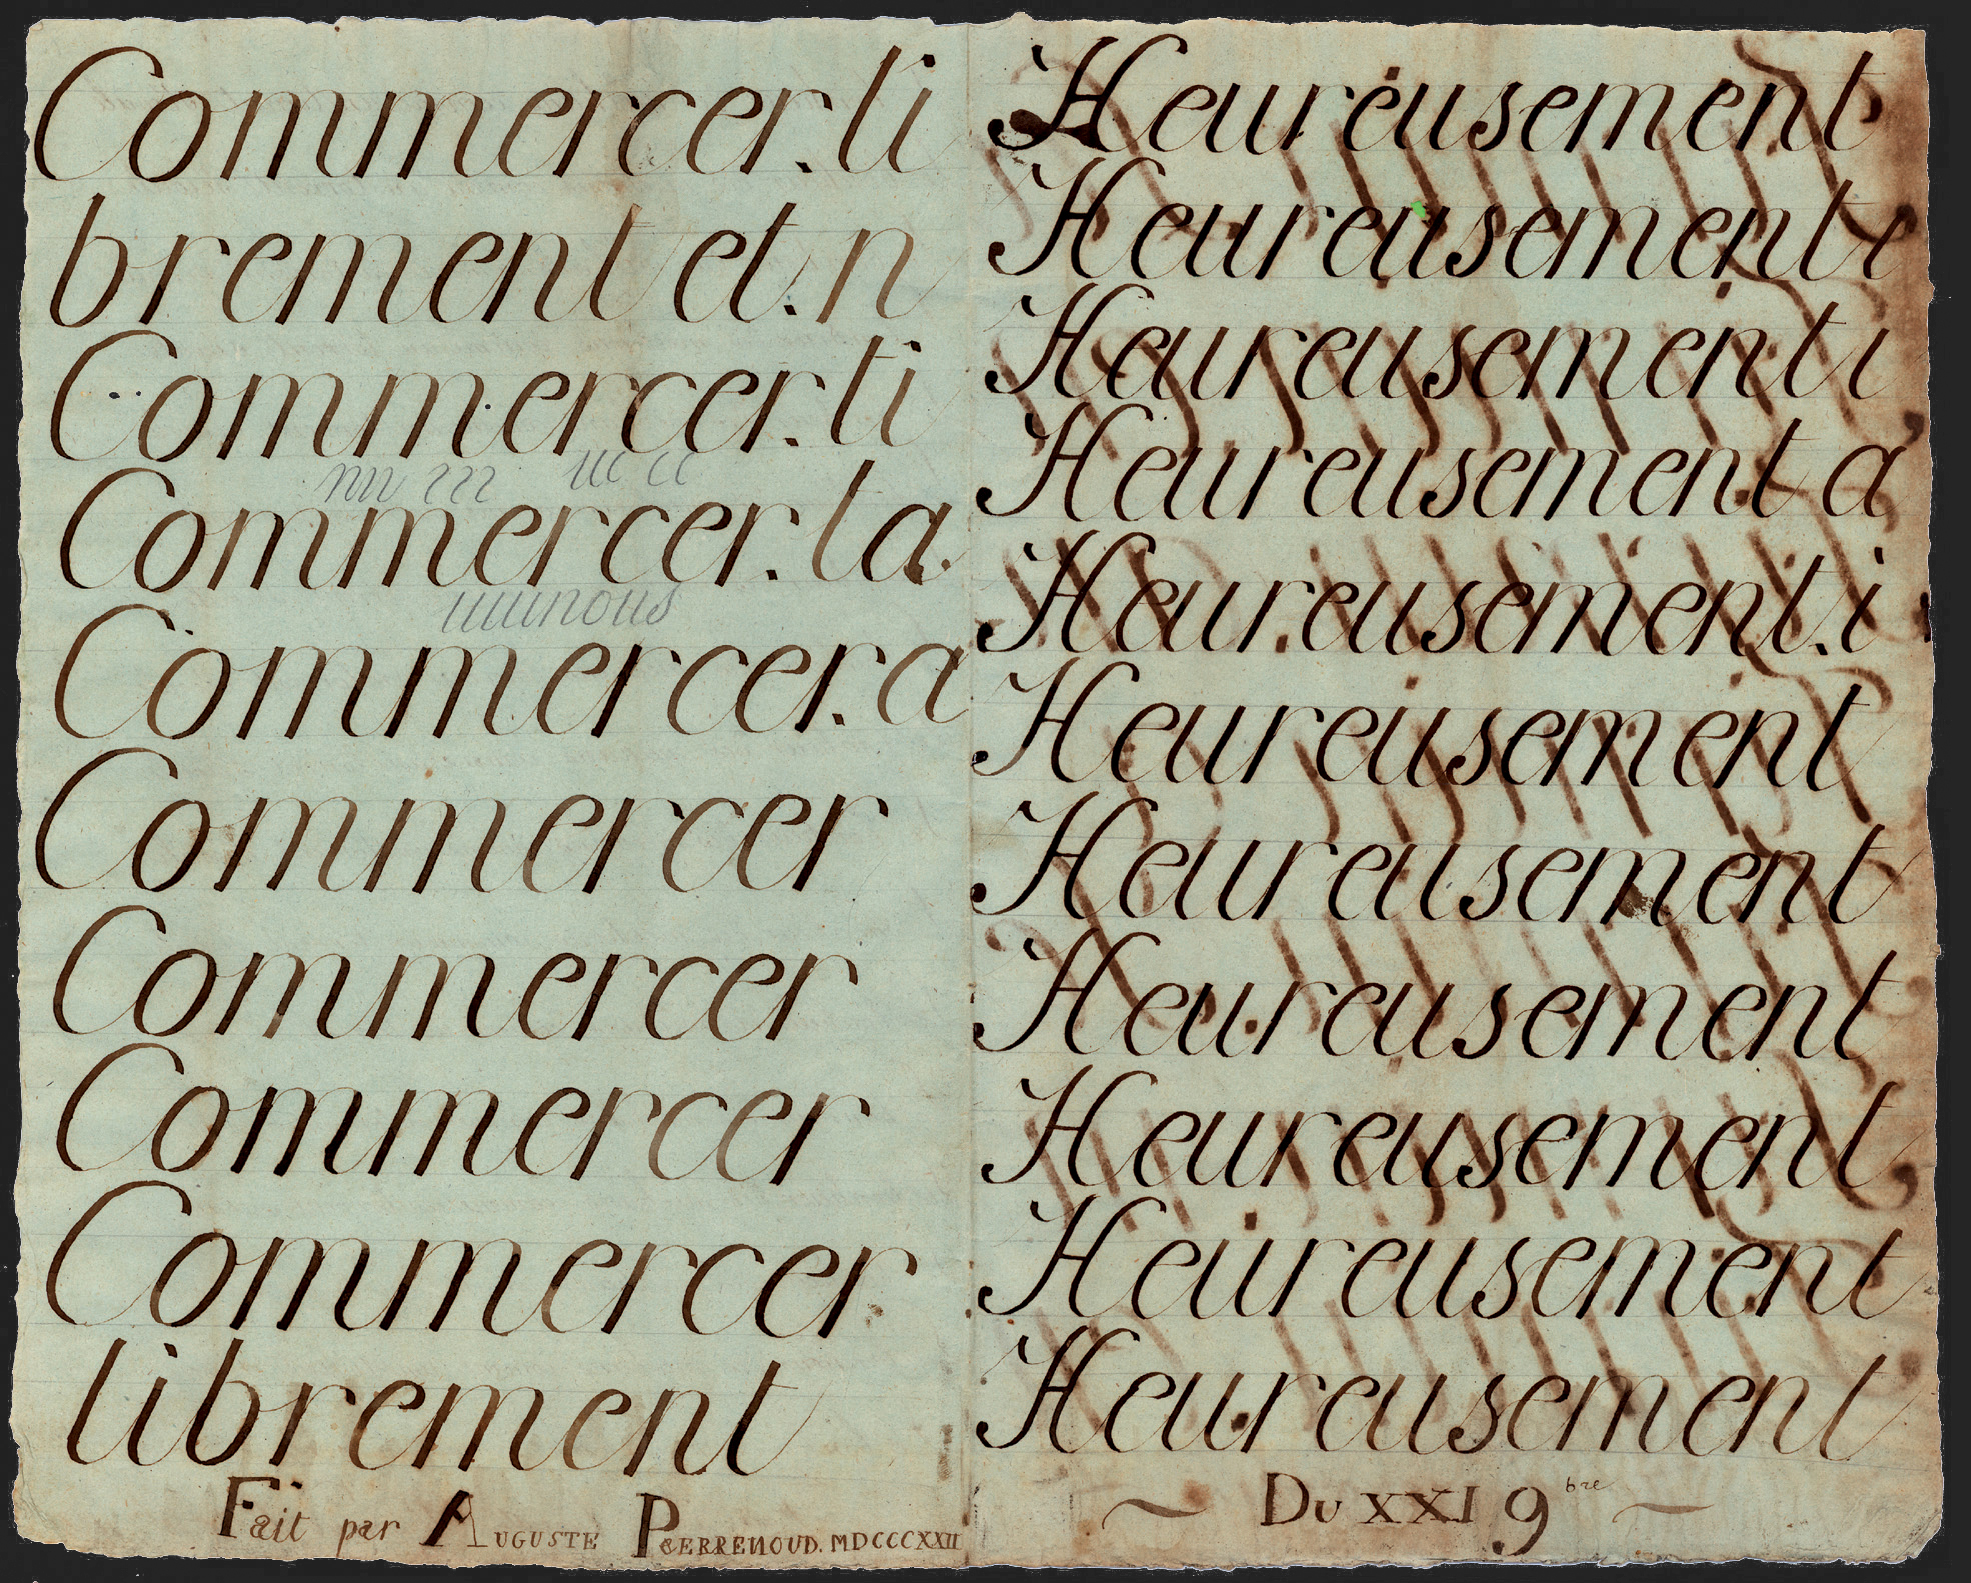 Commercer.li
brement et.n
Commercer.li
nn 222 uc cc
Commercer.la.
uuunous
Commercer.a
Commercer
Commercer
Commercer
Commercer
librement
Fait par AUGUSTE PERRENOUD. MDCCCXXII
Heureusement
Heureusementi
Heureusementi
Heureusement a
Heureusement.i
Heureusement
Heureusement
Heureusement
Heureusement
Heureusement
Heureusement
~ Du XXI 9bre ~